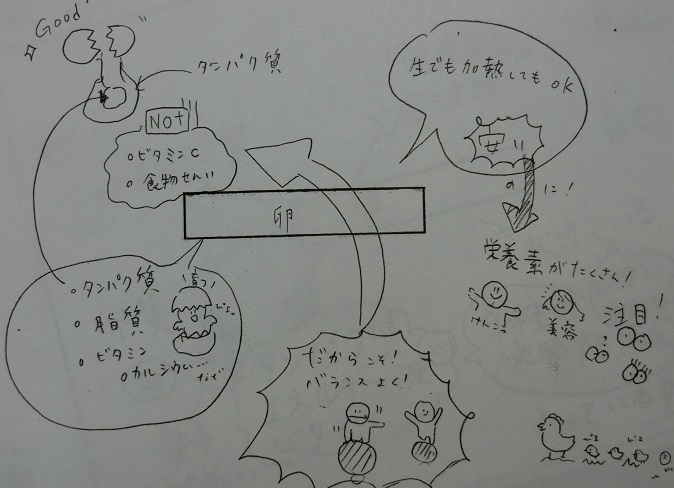 Good
タンパク質
NOT
・ビタミンC
・食物せんい
卵
・タンパク質
・脂質
・ビタミン
・カルシウム…
など
生でも加熱してもOK
安い
のに!
栄養素がたくさん!
けんこう
美容
注目!
だからこそ!
バランスよく!